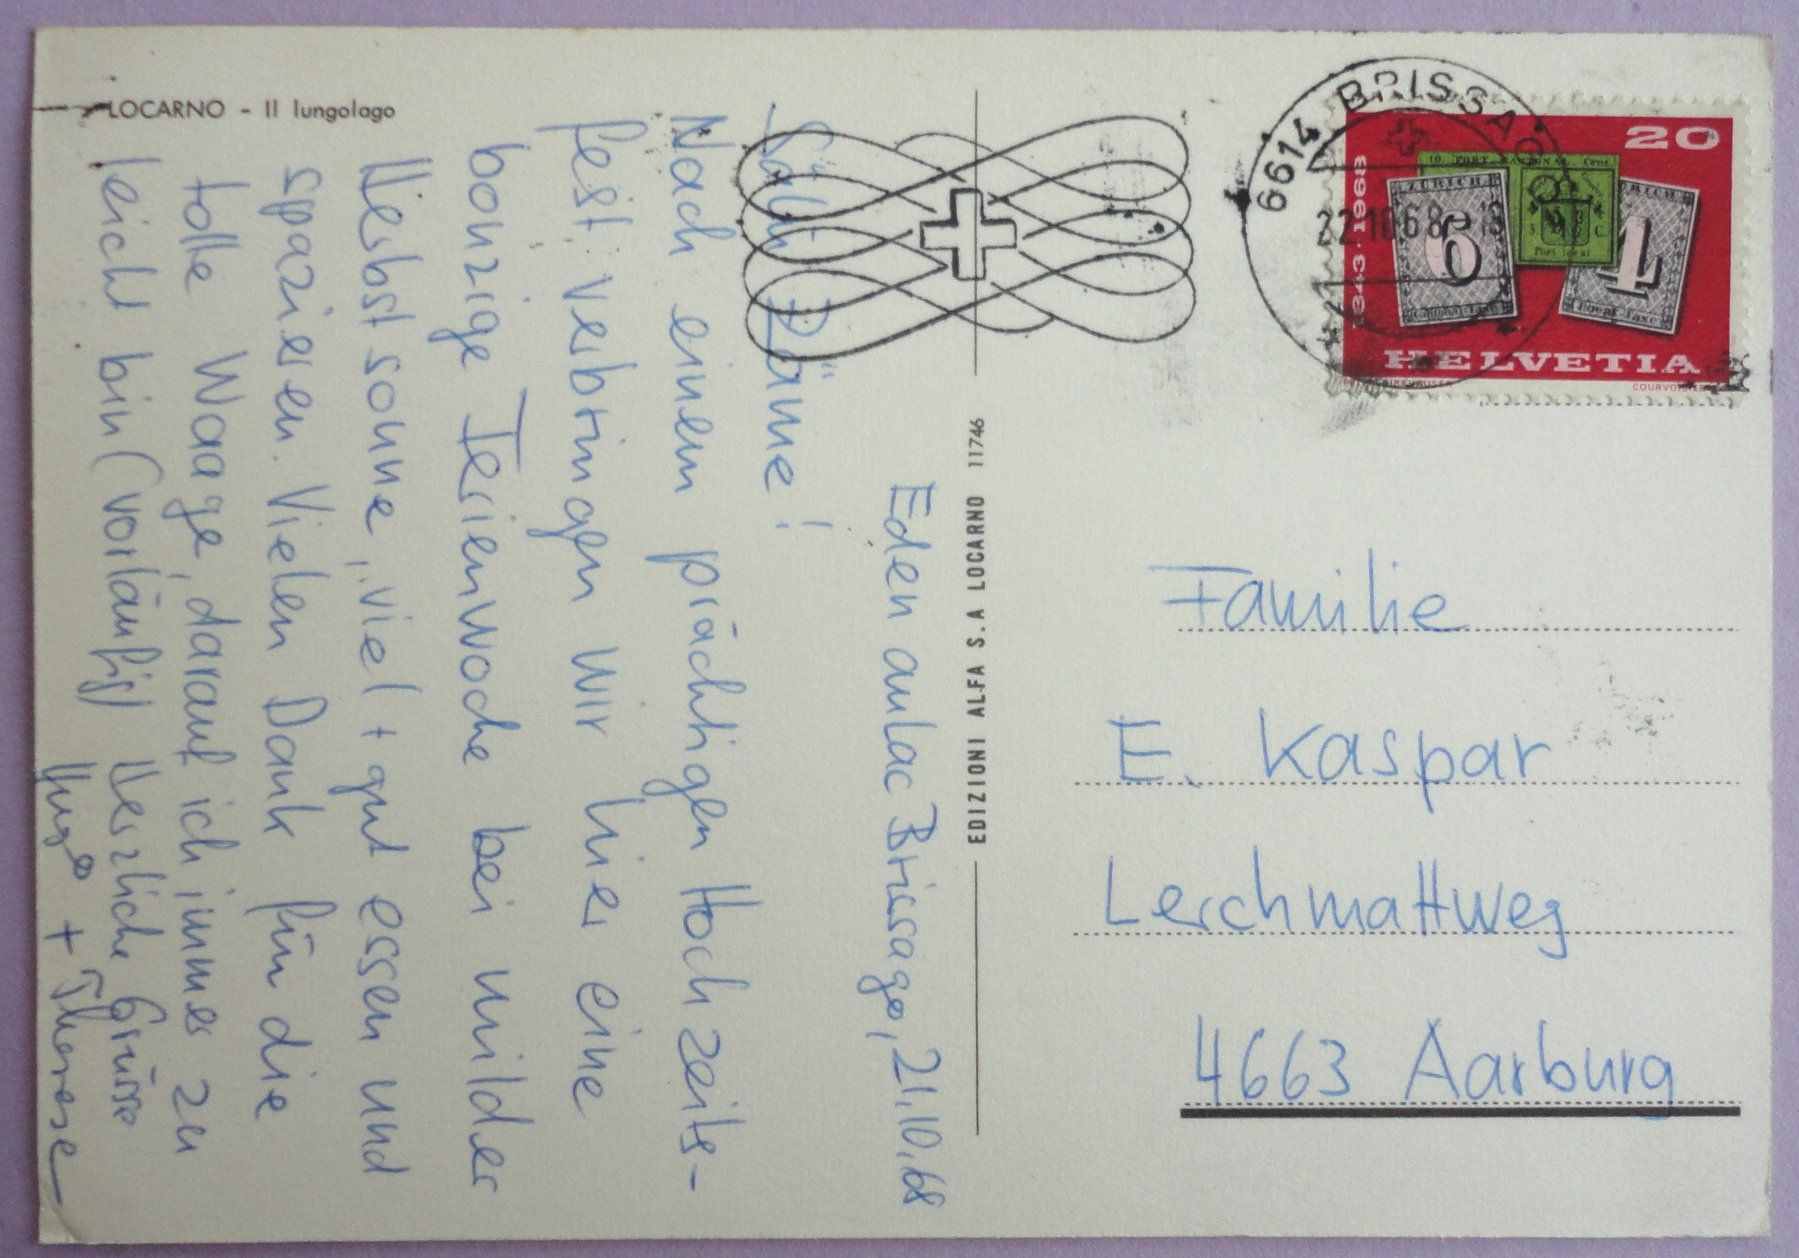 LOCARNO - Il lungolago
Eden aulac Brissago, 21.10.68
Salü Zäme!
Nach einem prächtigen Hochzeits-
fest verbringen wir hier eine
bonzige Ferienwoche bei milder
Herbstsonne, viel + gut essen und
spazieren. Vielen Dank für die
tolle Waage, darauf ich immer zu
leicht bin (vorläufig) Herzliche Grüsse
Hugo + Therese
EDIZIONI ALFA S.A LOCARNO 11746
6614 BRISSAGO
22.10.68
1843·1968
20
10 PORT KANTONAL Cent.
ZÜRICH
6
Port local
ZÜRICH
4
Local-Taxe
HELVETIA
COURVOISIER
Familie
E. Kaspar
Lerchmattweg
4663 Aarburg